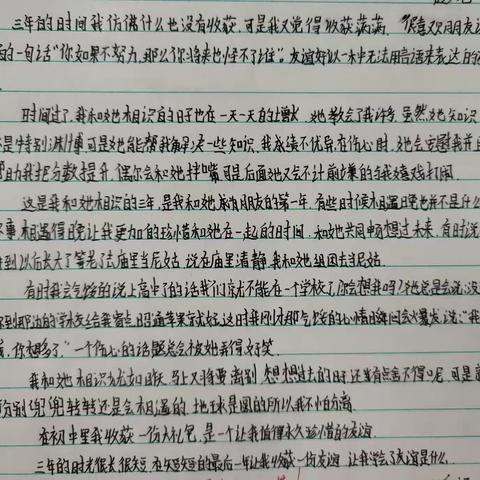 三年的时间我仿佛什么也没有收获,可是我又觉得收获满满,"很喜欢朋友
的一句话"你如果不努力,那么你将来也怪不了谁"。友谊好似一本中无法用言语来表达的
时间过了,我和她相识的日子也在一天一天的上增,她教会了我许多,虽然她知识
是特别渊博可是她能帮我解决一些知识,我成绩不优异,在伤心时,她会安慰我并且
助我把分数提升,偶尔会和她拌嘴,可是后面她又会不计前嫌的与我嬉戏打闹。
这是我和她相识的三年,是我和她成为朋友的第一年,有些时候相遇得晚也并不是什么
事,相遇得晚让我更加的珍惜和她在一起的时间,和她共同畅想过未来,有时说
到以后长大了等老了去庙里当尼姑,说在庙里清静,我和她组团去当尼姑.
有时我会气馁的说上高中了的话我们就不能在一个学校了,你会想我吗?她总是会说:没
到那边的学校交给我寄点昭通苹果就好,这时我刚才那气馁的心情瞬间会爆发,说:"我
,你想多了,"一个伤心的话题总会被她弄得好笑.
我和她相识犹如昨天,马上又将要离别,想想过去的时还有点舍不得呢,可是
分别兜兜转转还是会相遇的,地球是圆的所以我不怕分离.
在初中里我收获一份大礼包,是一个让我值得永久珍惜的友谊.
三年的时光很长很短,在短短的最后一年让我收获一份友谊,让我学会了友谊是什么.